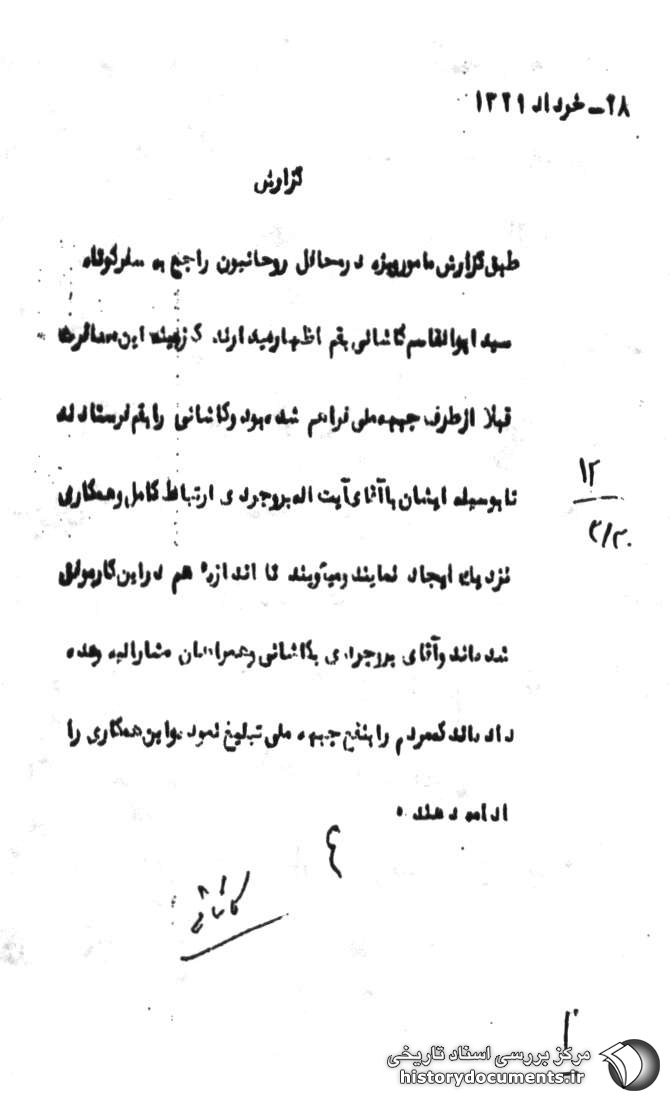 ۲۸ــ خرداد ۱۳۲۹
گزارش
طبق گزارش مامور ویژه در محافل روحانیون راجع به سفر کوتاه
سید ابوالقاسم کاشانی بقم اظهار میدارند که زمینه این مسافرت
قبلا از طرف جبهه ملی فراهم شده بود و کاشانی را بقم فرستاده اند
تا بوسیله ایشان با آقای آیت اله بروجردی ارتباط کامل و همکاری
نزدیک ایجاد نمایند و میگویند تا اندازه هم در این کار موفق
شده اند و آقای بروجردی بکاشانی و همراهان مشارالیه وعده
داده اند که مردم را بنفع جبهه ملی تبلیغ نموده و این همکاری را
ادامه دهند.
۱۲
۳/۳۰
۴
کاشانی
مرکز بررسی اسناد تاریخی
historydocuments.ir